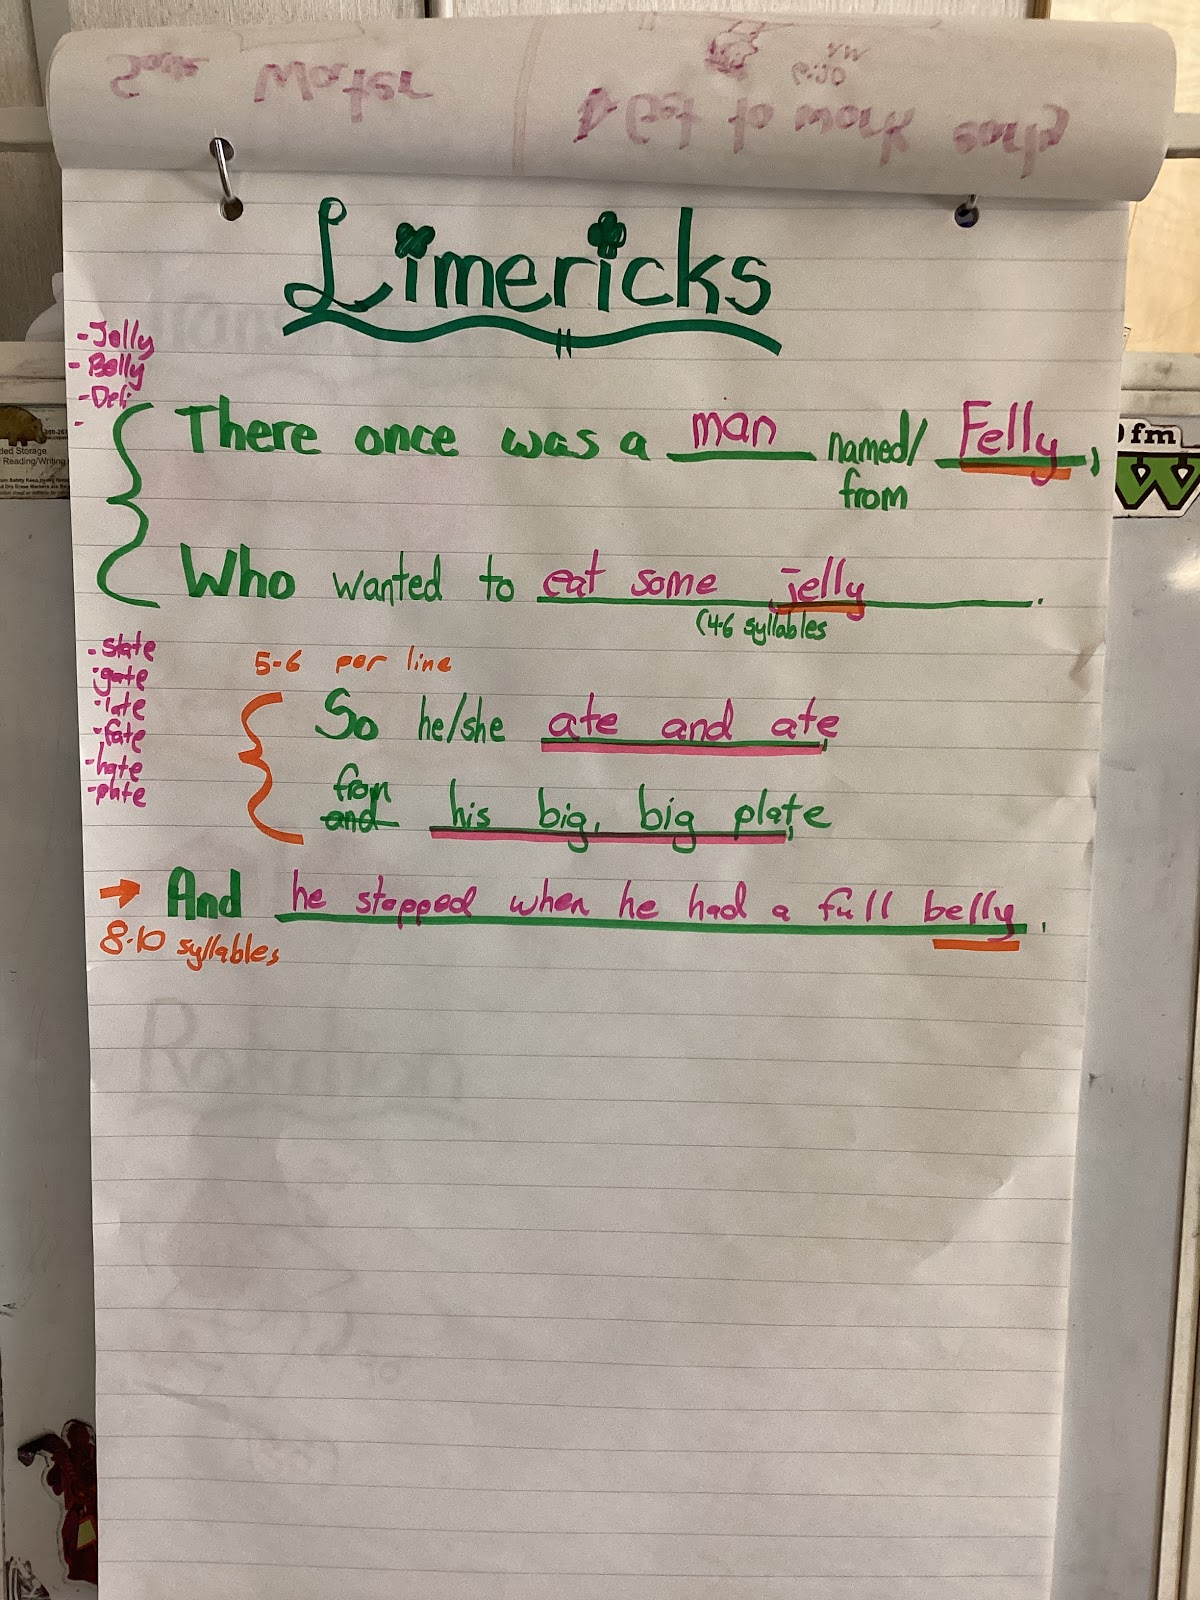 Save Water
Get to work early
6:20
Limericks
-Jelly
-Belly
-Deli
-
There once was a man named/ Felly,
from
Who wanted to eat some jelly.
(4-6 syllables
-state
-gate
-late
-fate
-hate
-plate
5-6 per line
So he/she ate and ate,
from
and his big, big plate,
→ And he stopped when he had a full belly.
8-10 syllables
Rotation
fm
W